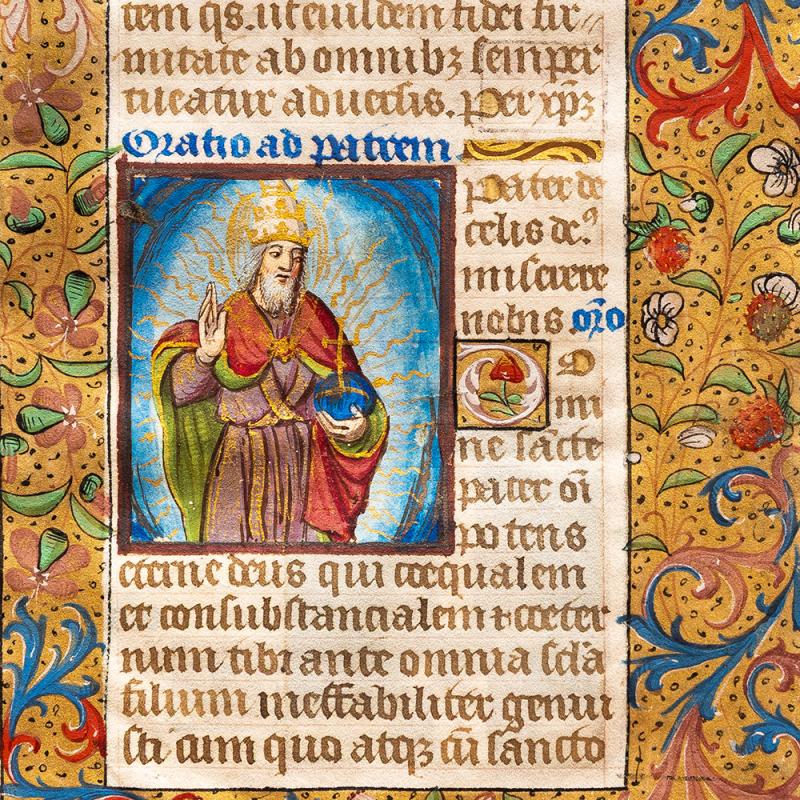 tem qs. ut eiusdem fidei fir
mitate ab omnibꝫ semper
tueatur aduersis. Per xp̄ꝫ
Oratio ad patrem
Pater de
celis de᷒
miserere
nobis oro
D
mi
ne sācte
pater oī
potens
eterne deus qui coequalem
et consubstancialem ⁊ coeter
num tibi ante omnia sc̄la
filium ineffabiliter genui
sti cum quo atqꝫ cū sancto